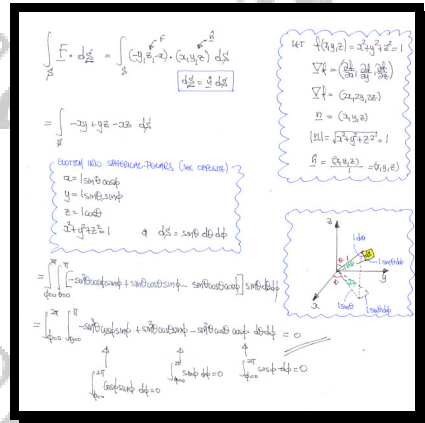 ∫_S F · dS = ∫_S (-y, z, -x) · (x, y, z) dS
F
n̂
dS = n̂ dS
= ∫_S -xy + yz - xz dS
SWITCH INTO SPHERICAL POLARS (SEE OPPOSITE)
x = 1 sinθ cosφ
y = 1 sinθ sinφ
z = 1 cosθ
x² + y² + z² = 1 & dS = sinθ dθ dφ
= ∫_{φ=0}^{2π} ∫_{θ=0}^{π} [-sin²θ cosφ sinφ + sinθ cosθ sinφ - sinθ cosθ cosφ] sinθ dθ dφ
= ∫_{φ=0}^{2π} ∫_{θ=0}^{π} -sin³θ cosφ sinφ + sin²θ cosθ sinφ - sin²θ cosθ cosφ dθ dφ = 0
∫_{φ=0}^{2π} cosφ sinφ dφ = 0
∫_{φ=0}^{2π} sinφ dφ = 0
∫_{φ=0}^{2π} cosφ dφ = 0
LET f(x,y,z) = x² + y² + z² = 1
∇f = (∂f/∂x, ∂f/∂y, ∂f/∂z)
∇f = (2x, 2y, 2z)
n = (x, y, z)
|n| = √(x² + y² + z²) = 1
n̂ = (x, y, z)/1 = (x, y, z)
z
1dθ
dS
θ
1
1 sinθ dφ
y
φ
1 sinθ
x